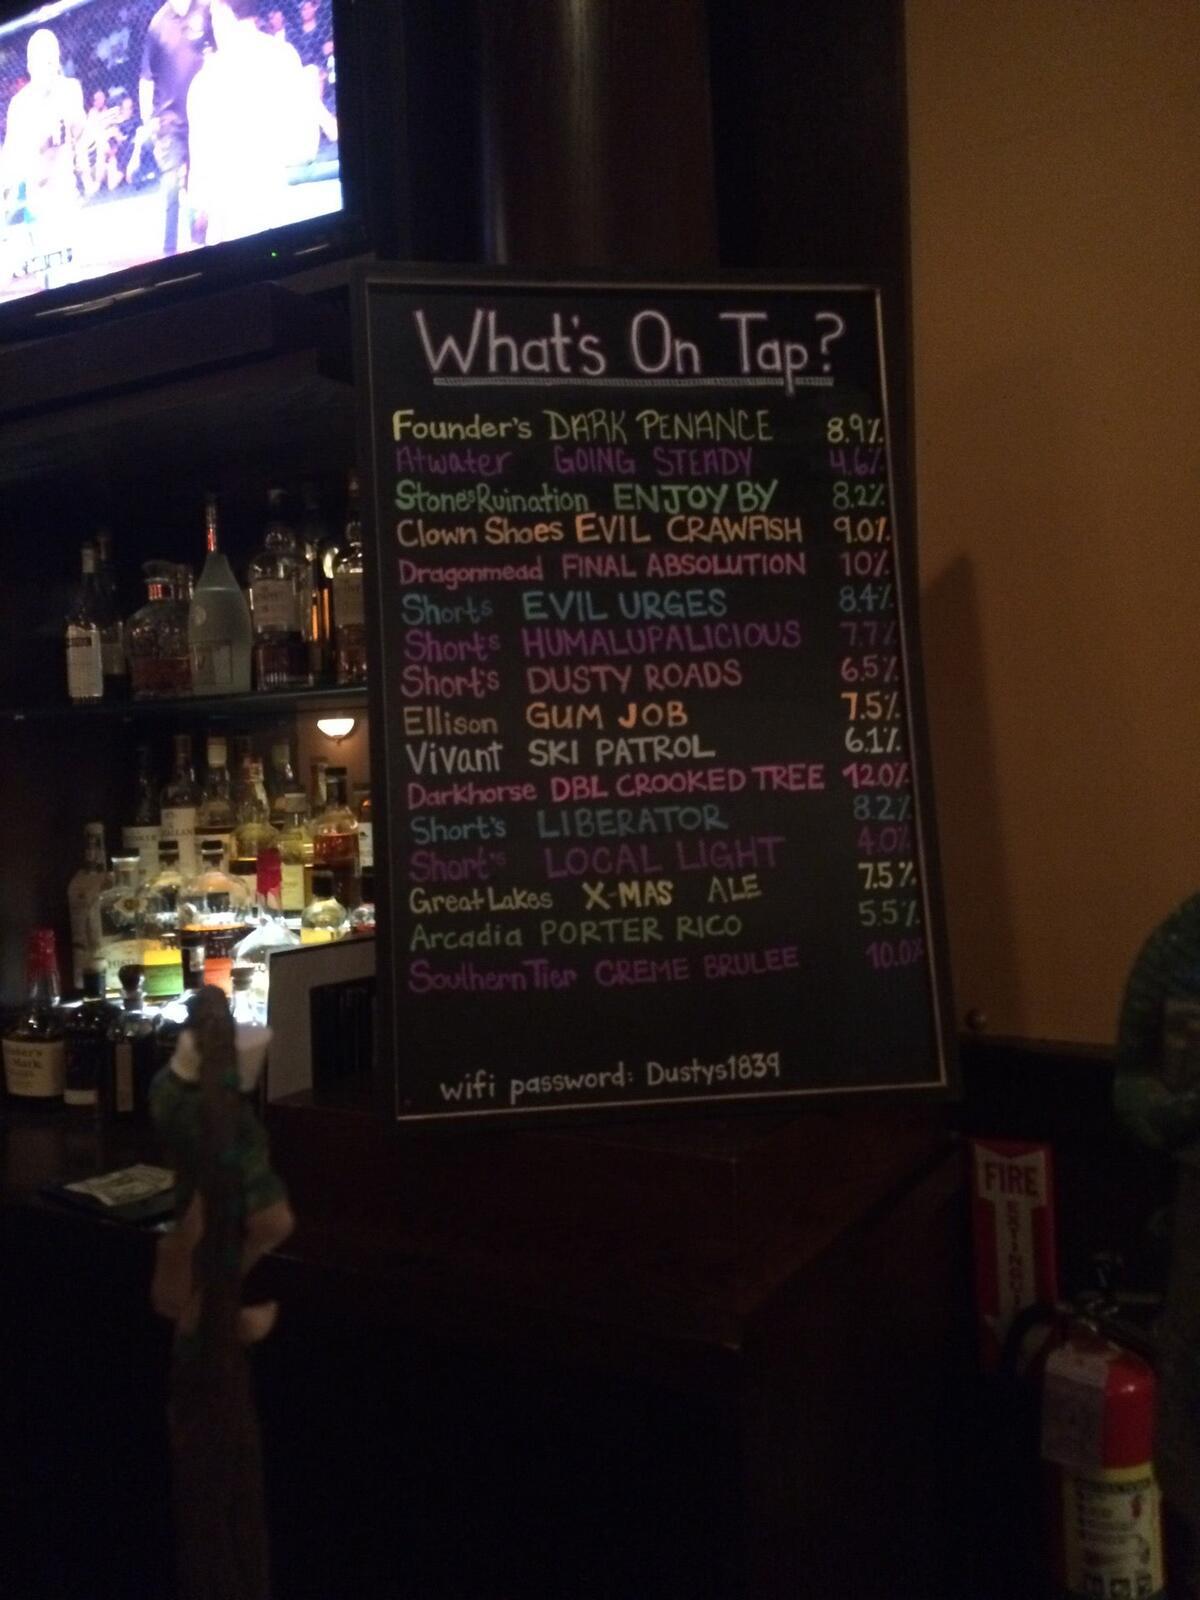 What's On Tap?
Founder's DARK PENANCE 8.9%
Atwater GOING STEADY 4.6%
Stone's Ruination ENJOY BY 8.2%
Clown Shoes EVIL CRAWFISH 9.0%
Dragonmead FINAL ABSOLUTION 10%
Short's EVIL URGES 8.4%
Short's HUMALUPALICIOUS 7.7%
Short's DUSTY ROADS 6.5%
Ellison GUM JOB 7.5%
Vivant SKI PATROL 6.1%
Darkhorse DBL CROOKED TREE 12.0%
Short's LIBERATOR 8.2%
Short's LOCAL LIGHT 4.0%
Great Lakes X-MAS ALE 7.5%
Arcadia PORTER RICO 5.5%
Southern Tier CREME BRULEE 10.0%
wifi password: Dustys1839
FIRE